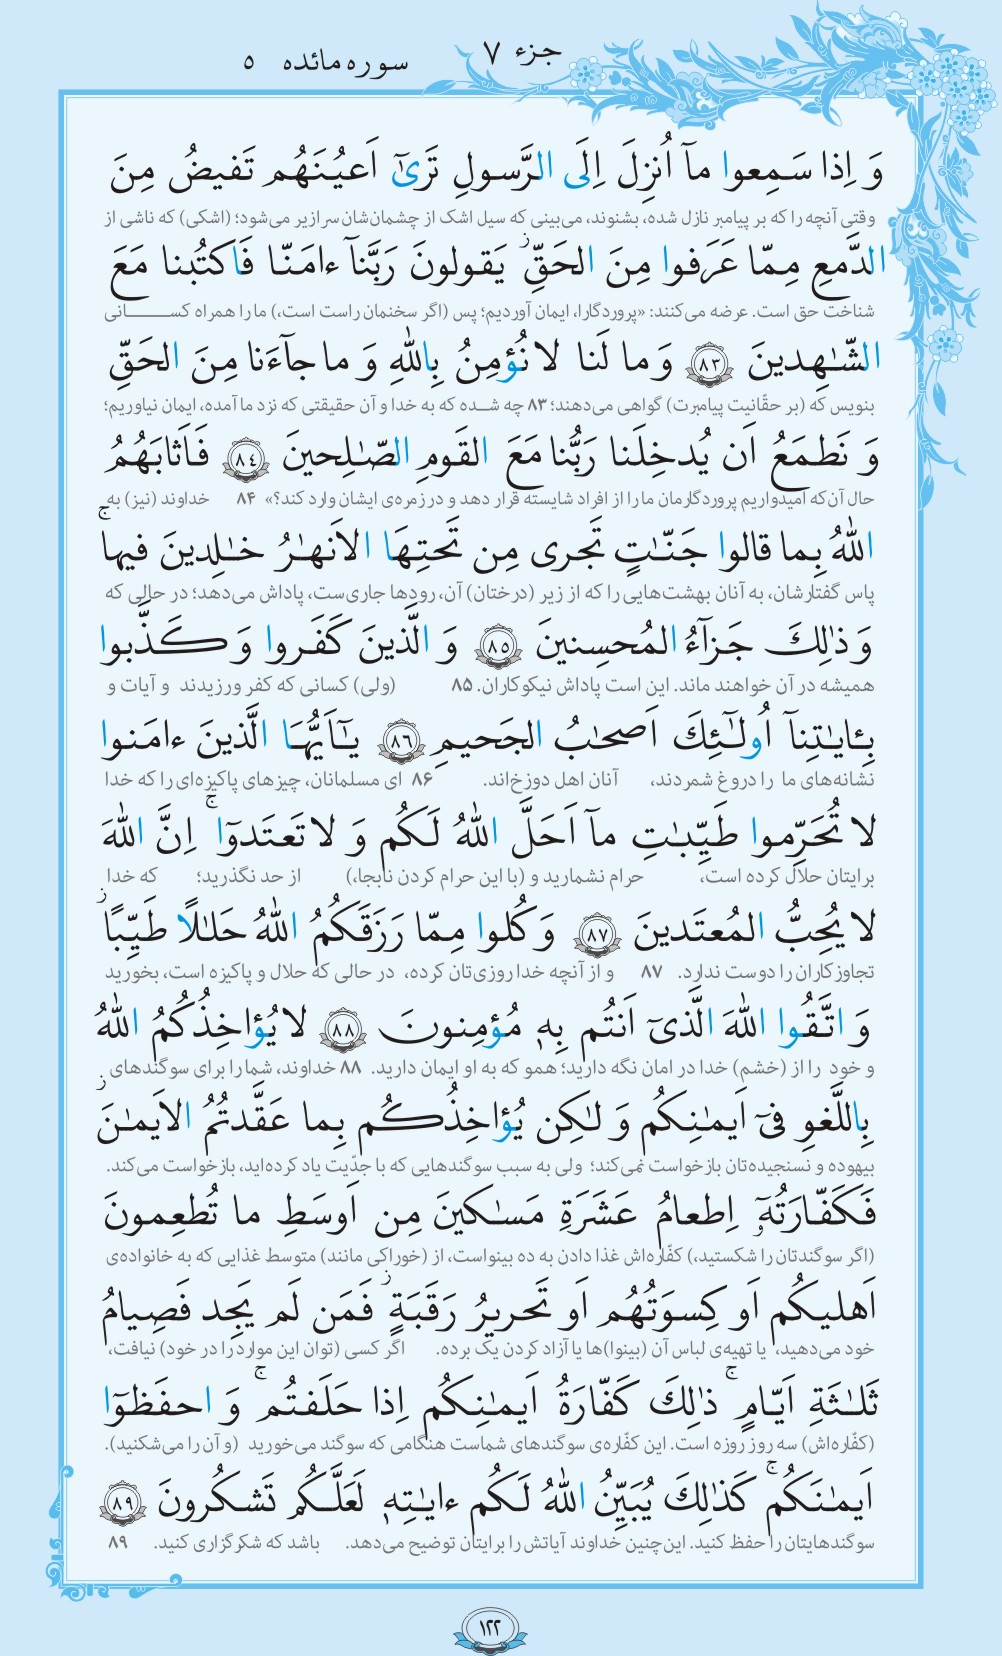 جزء ۷
سوره مائده ۵
وَ اِذا سَمِعوا مآ اُنزِلَ اِلَى الرَّسولِ تَرىٰٓ اَعيُنَهُم تَفيضُ مِنَ
وقتی آنچه را که بر پیامبر نازل شده، بشنوند، می‌بینی که سیل اشک از چشمان‌شان سرازیر می‌شود؛ (اشکی) که ناشی از
الدَّمعِ مِمّا عَرَفوا مِنَ الحَقِّ ۖز يَقولونَ رَبَّنآ ءامَنّا فَاكتُبنا مَعَ
شناخت حق است. عرضه می‌کنند: «پروردگارا، ایمان آوردیم؛ پس (اگر سخنمان راست است،) ما را همراه کســـــانی
الشّـٰهِدينَ ﴿٨٣﴾ وَ ما لَنا لا نُؤمِنُ بِاللّٰهِ وَ ما جآءَنا مِنَ الحَقِّ
بنویس که (بر حقّانیت پیامبرت) گواهی می‌دهند؛ ۸۳ چه شــده که به خدا و آن حقیقتی که نزد ما آمده، ایمان نیاوریم؛
وَ نَطمَعُ اَن يُدخِلَنا رَبُّنا مَعَ القَومِ الصّـٰلِحينَ ﴿٨٤﴾ فَاَثابَهُمُ
حال آن‌که امیدواریم پروردگارمان ما را از افراد شایسته قرار دهد و در زمره‌ی ایشان وارد کند؟» ۸۴ خداوند (نیز) به
اللّٰهُ بِما قالوا جَنّـٰتٍ تَجرى مِن تَحتِهَا الاَنهـٰرُ خـٰلِدينَ فيها ۚ
پاس گفتارشان، به آنان بهشت‌هایی را که از زیر (درختان) آن، رودها جاری‌ست، پاداش می‌دهد؛ در حالی که
وَ ذٰلِكَ جَزآءُ المُحسِنينَ ﴿٨٥﴾ وَ الَّذينَ كَفَروا وَ كَذَّبوا
همیشه در آن خواهند ماند. این است پاداش نیکوکاران. ۸۵ (ولی) کسانی که کفر ورزیدند و آیات و
بِـٔايـٰتِنآ اُولـٰٓئِكَ اَصحـٰبُ الجَحيمِ ﴿٨٦﴾ يـٰٓاَيُّهَا الَّذينَ ءامَنوا
نشانه‌های ما را دروغ شمردند، آنان اهل دوزخ‌اند. ۸۶ ای مسلمانان، چیزهای پاکیزه‌ای را که خدا
لا تُحَرِّموا طَيِّبـٰتِ مآ اَحَلَّ اللّٰهُ لَكُم وَ لا تَعتَدوٓا ۚ اِنَّ اللّٰهَ
برایتان حلال کرده است، حرام نشمارید و (با این حرام کردن نابجا،) از حد نگذرید؛ که خدا
لا يُحِبُّ المُعتَدينَ ﴿٨٧﴾ وَ كُلوا مِمّا رَزَقَكُمُ اللّٰهُ حَلـٰلًا طَيِّبًا ز
تجاوزکاران را دوست ندارد. ۸۷ و از آنچه خدا روزی‌تان کرده، در حالی که حلال و پاکیزه است، بخورید
وَ اتَّقُوا اللّٰهَ الَّذىٓ اَنتُم بِهٖ مُؤمِنونَ ﴿٨٨﴾ لا يُؤاخِذُكُمُ اللّٰهُ
و خود را از (خشم) خدا در امان نگه دارید؛ همو که به او ایمان دارید. ۸۸ خداوند، شما را برای سوگندهای
بِاللَّغوِ فىٓ اَيمـٰنِكُم وَ لـٰكِن يُؤاخِذُكُم بِما عَقَّدتُمُ الاَيمـٰنَ ز
بیهوده و نسنجیده‌تان بازخواست نمی‌کند؛ ولی به سبب سوگندهایی که با جدّیت یاد کرده‌اید، بازخواست می‌کند.
فَكَفّارَتُهٗٓ اِطعامُ عَشَرَةِ مَسـٰكينَ مِن اَوسَطِ ما تُطعِمونَ
(اگر سوگندتان را شکستید،) کفّاره‌اش غذا دادن به ده بینواست، از (خوراکی مانند) متوسط غذایی که به خانواده‌ی
اَهليكُم اَو كِسوَتُهُم اَو تَحريرُ رَقَبَةٍ ز فَمَن لَم يَجِد فَصِيامُ
خود می‌دهید، یا تهیه‌ی لباس آن (بینوا)ها یا آزاد کردن یک برده. اگر کسی (توان این موارد را در خود) نیافت،
ثَلـٰثَةِ اَيّامٍ ۚ ذٰلِكَ كَفّارَةُ اَيمـٰنِكُم اِذا حَلَفتُم ۚ وَ احفَظوٓا
(کفّاره‌اش) سه روز روزه است. این کفّاره‌ی سوگندهای شماست هنگامی که سوگند می‌خورید (و آن را می‌شکنید).
اَيمـٰنَكُم ۚ كَذٰلِكَ يُبَيِّنُ اللّٰهُ لَكُم ءايـٰتِهٖ لَعَلَّكُم تَشكُرونَ ﴿٨٩﴾
سوگندهایتان را حفظ کنید. این‌چنین خداوند آیاتش را برایتان توضیح می‌دهد. باشد که شکرگزاری کنید. ۸۹
۱۲۲